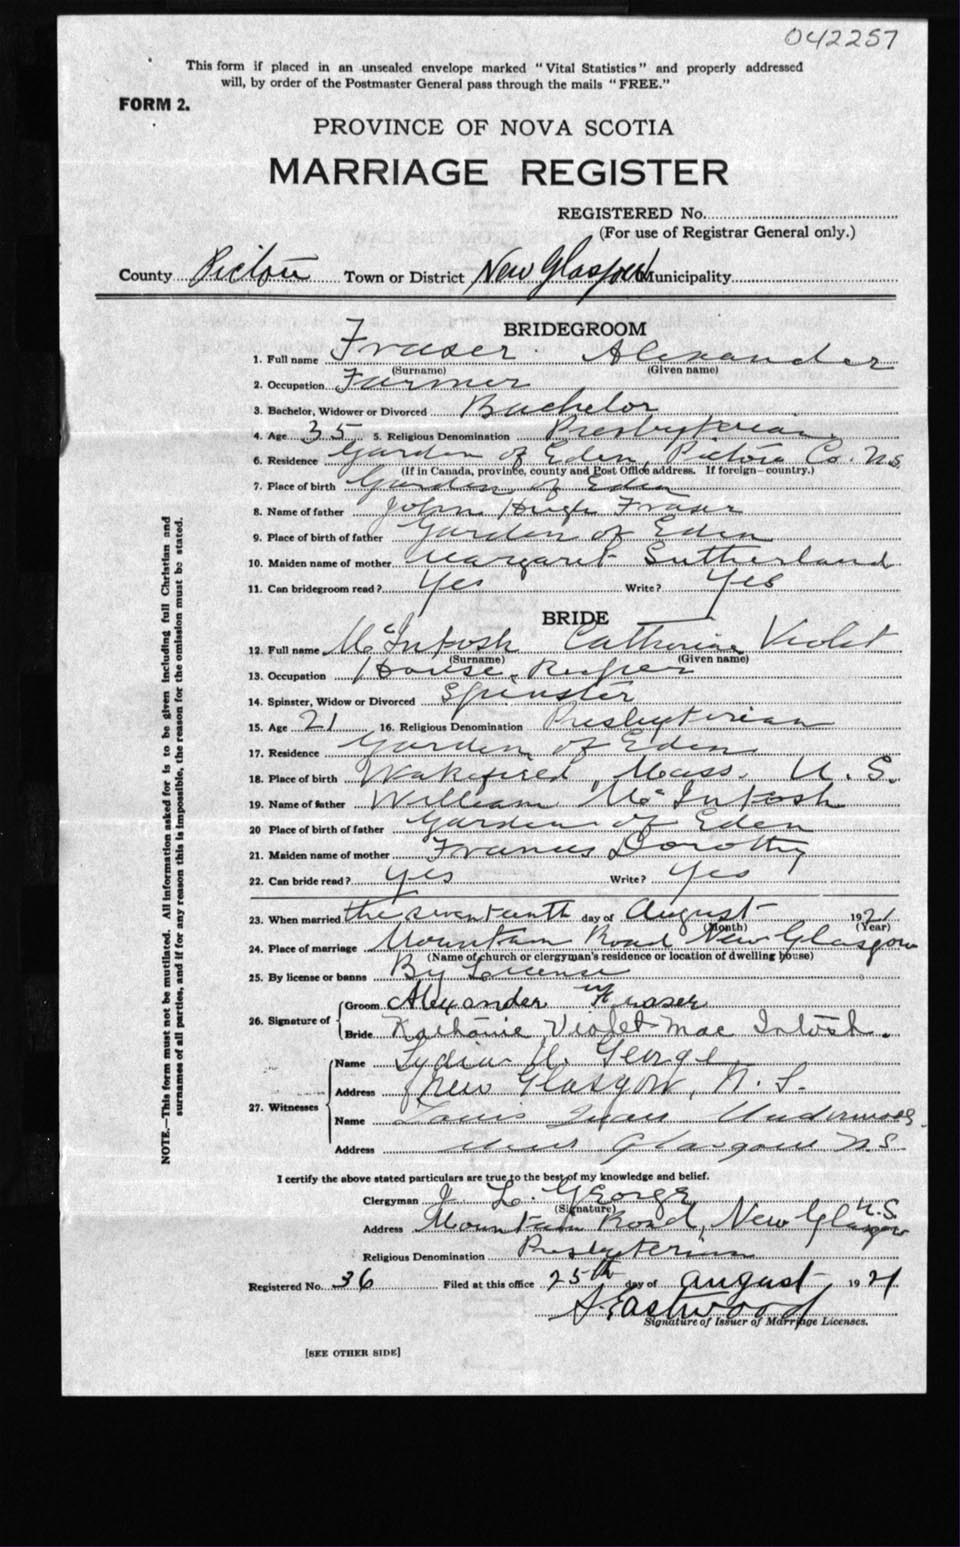 042257
This form if placed in an unsealed envelope marked "Vital Statistics" and properly addressed
will, by order of the Postmaster General pass through the mails "FREE."
FORM 2.
PROVINCE OF NOVA SCOTIA
MARRIAGE REGISTER
REGISTERED No.
(For use of Registrar General only.)
County Pictou Town or District New Glasgow Municipality
BRIDEGROOM
1. Full name Fraser Alexander
(Surname) (Given name)
2. Occupation Farmer
3. Bachelor, Widower or Divorced Bachelor
4. Age 35 5. Religious Denomination Presbyterian
6. Residence Garden of Eden, Pictou Co. N.S.
(If in Canada, province, county and Post Office address. If foreign—country.)
7. Place of birth Garden of Eden
8. Name of father John Hugh Fraser
9. Place of birth of father Garden of Eden
10. Maiden name of mother Margaret Sutherland
11. Can bridegroom read? Yes Write? Yes
BRIDE
12. Full name McIntosh Catherine Violet
(Surname) (Given name)
13. Occupation House Keeper
14. Spinster, Widow or Divorced Spinster
15. Age 21 16. Religious Denomination Presbyterian
17. Residence Garden of Eden
18. Place of birth Wakefield, Mass. U.S.
19. Name of father William McIntosh
20 Place of birth of father Garden of Eden
21. Maiden name of mother Frances Dorothy
22. Can bride read? Yes Write? Yes
23. When married the seventeenth day of August 1921
(Month) (Year)
24. Place of marriage Mountain Road New Glasgow
(Name of church or clergyman's residence or location of dwelling house)
25. By license or banns By License
26. Signature of Groom Alexander Fraser
Bride Violet Mac Intosh.
27. Witnesses Name Lydia George
Address New Glasgow, N.S.
Name Louis
Address New Glasgow N.S.
I certify the above stated particulars are true to the best of my knowledge and belief.
Clergyman J. L. George
(Signature)
Address Mountain Road, New Glasgow N.S
Religious Denomination Presbyterian
Registered No. 36 Filed at this office 25th day of August 1921
Eastwood
Signature of Issuer of Marriage Licenses.
[SEE OTHER SIDE]
NOTE.—This form must not be mutilated. All information asked for is to be given including full Christian and
surnames of all parties, and if for any reason this is impossible, the reason for the omission must be stated.